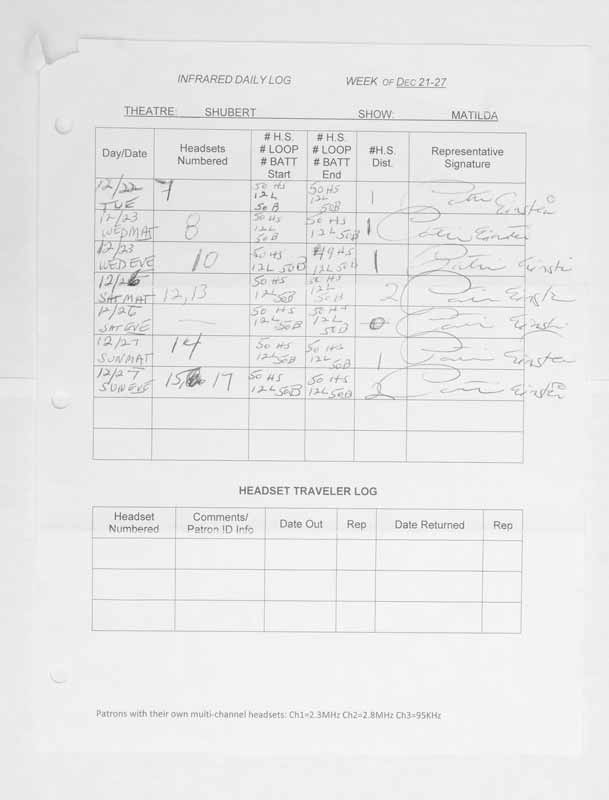 INFRARED DAILY LOG WEEK OF DEC 21-27
THEATRE: SHUBERT SHOW: MATILDA
Day/Date
Headsets
Numbered
# H.S.
# LOOP
# BATT
Start
# H.S.
# LOOP
# BATT
End
#H.S.
Dist.
Representative
Signature
12/22
TUE
7
50 HS
12 L
50 B
50 HS
12 L
50B
1
Einstein
12/23
WEDMAT
8
50 HS
12 L
50B
50 HS
12 L 50B
1
Einstein
12/23
WED EVE
10
50 HS
12L 50B
49 HS
12L 50B
1
Einstein
12/26
SAT MAT
12, 13
50 HS
12L 50B
50 HS
12L
50B
2
Einstein
12/26
SAT EVE
—
50 HS
12L 50B
50 HS
12L
50B
0
Einstein
12/27
SUNMAT
14
50 HS
12L 50B
50 HS
12L 50B
1
Einstein
12/27
SUNEVE
15, 17
50 HS
12L 50B
50 HS
12L 50B
2
Einstein
HEADSET TRAVELER LOG
Headset
Numbered
Comments/
Patron ID Info
Date Out
Rep
Date Returned
Rep
Patrons with their own multi-channel headsets: Ch1=2.3MHz Ch2=2.8MHz Ch3=95KHz